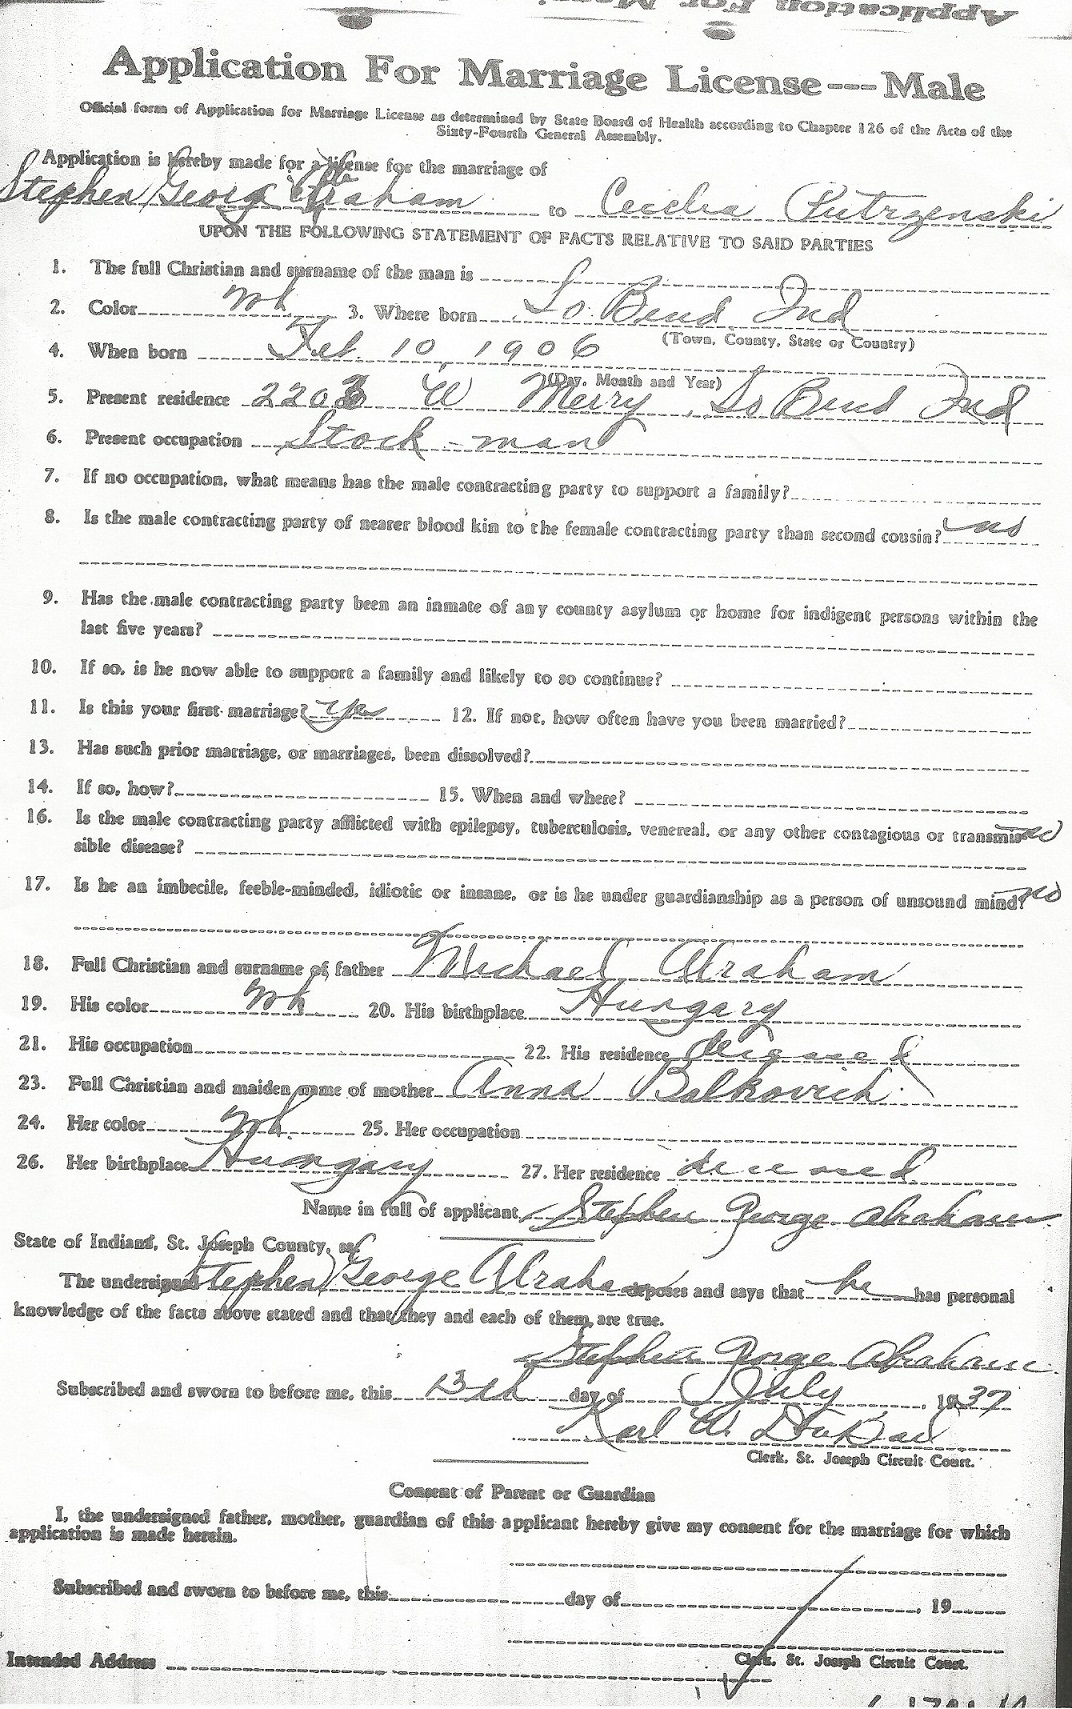 Application For
Application For Marriage License---Male
Official form of Application for Marriage License as determined by State Board of Health according to Chapter 126 of the Acts of the
Sixty-Fourth General Assembly.
Application is hereby made for a license for the marriage of
Stephen Georg Abraham to Cecelia Pietrzenski
UPON THE FOLLOWING STATEMENT OF FACTS RELATIVE TO SAID PARTIES
1. The full Christian and surname of the man is
2. Color Wh 3. Where born So. Bend Ind
(Town, County, State or Country)
4. When born Feb. 10, 1906
(Day, Month and Year)
5. Present residence 2203 W Merry, So Bend Ind
6. Present occupation Stock-man
7. If no occupation, what means has the male contracting party to support a family?
8. Is the male contracting party of nearer blood kin to the female contracting party than second cousin? no
9. Has the male contracting party been an inmate of any county asylum or home for indigent persons within the
last five years?
10. If so, is he now able to support a family and likely to so continue?
11. Is this your first marriage? Yes 12. If not, how often have you been married?
13. Has such prior marriage, or marriages, been dissolved?
14. If so, how? 15. When and where?
16. Is the male contracting party afflicted with epilepsy, tuberculosis, venereal, or any other contagious or transmis- no
sible disease?
17. Is he an imbecile, feeble-minded, idiotic or insane, or is he under guardianship as a person of unsound mind? no
18. Full Christian and surname of father Michael Abraham
19. His color Wh 20. His birthplace Hungary
21. His occupation 22. His residence
23. Full Christian and maiden name of mother Anna Balkovich
24. Her color Wh. 25. Her occupation
26. Her birthplace Hungary 27. Her residence deceased
Name in full of applicant Stephen George Abraham
State of Indiana, St. Joseph County, ss:
The undersigned Stephen George Abraham deposes and says that he has personal
knowledge of the facts above stated and that they and each of them are true.
Stephen George Abraham
Subscribed and sworn to before me, this 13th day of July, 1937
Karl W.
Clerk, St. Joseph Circuit Court.
Consent of Parent or Guardian
I, the undersigned father, mother, guardian of this applicant hereby give my consent for the marriage for which
application is made herein.
Subscribed and sworn to before me, this day of , 19
Clerk, St. Joseph Circuit Court.
Intended Address